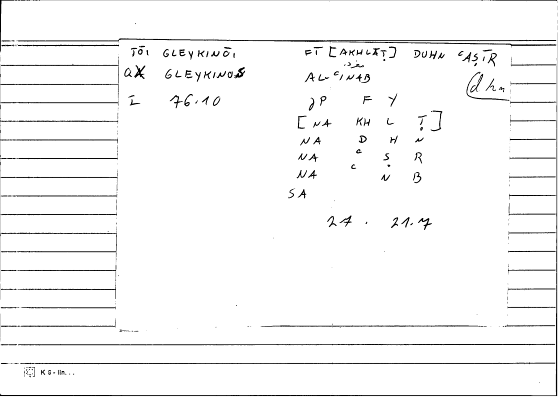 TŌI GLEYKINŌI
aX GLEYKINOS
I 76.10
FĪ [AKHLĀṬ] DUHN ʿAṢĪR
مفرد
AL-ʿINAB
dhn
JP F Y
[NA KH L Ṭ]
NA D H N
NA ʿ Ṣ R
NA ʿ N B
SA
27 . 21.7
K 6 - lin...